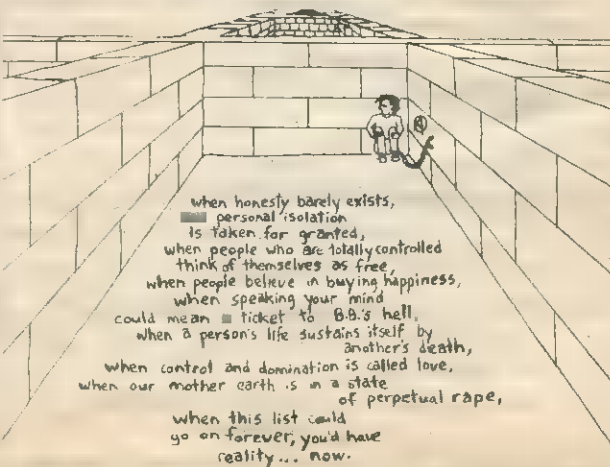 when honesty barely exists,
personal isolation
is taken for granted,
when people who are totally controlled
think of themselves as free,
when people believe in buying happiness,
when speaking your mind
could mean ticket to B.B.'s hell,
when a person's life sustains itself by
another's death,
when control and domination is called love,
when our mother earth is in a state
of perpetual rape,
when this list could
go on forever, you'd have
reality... now.